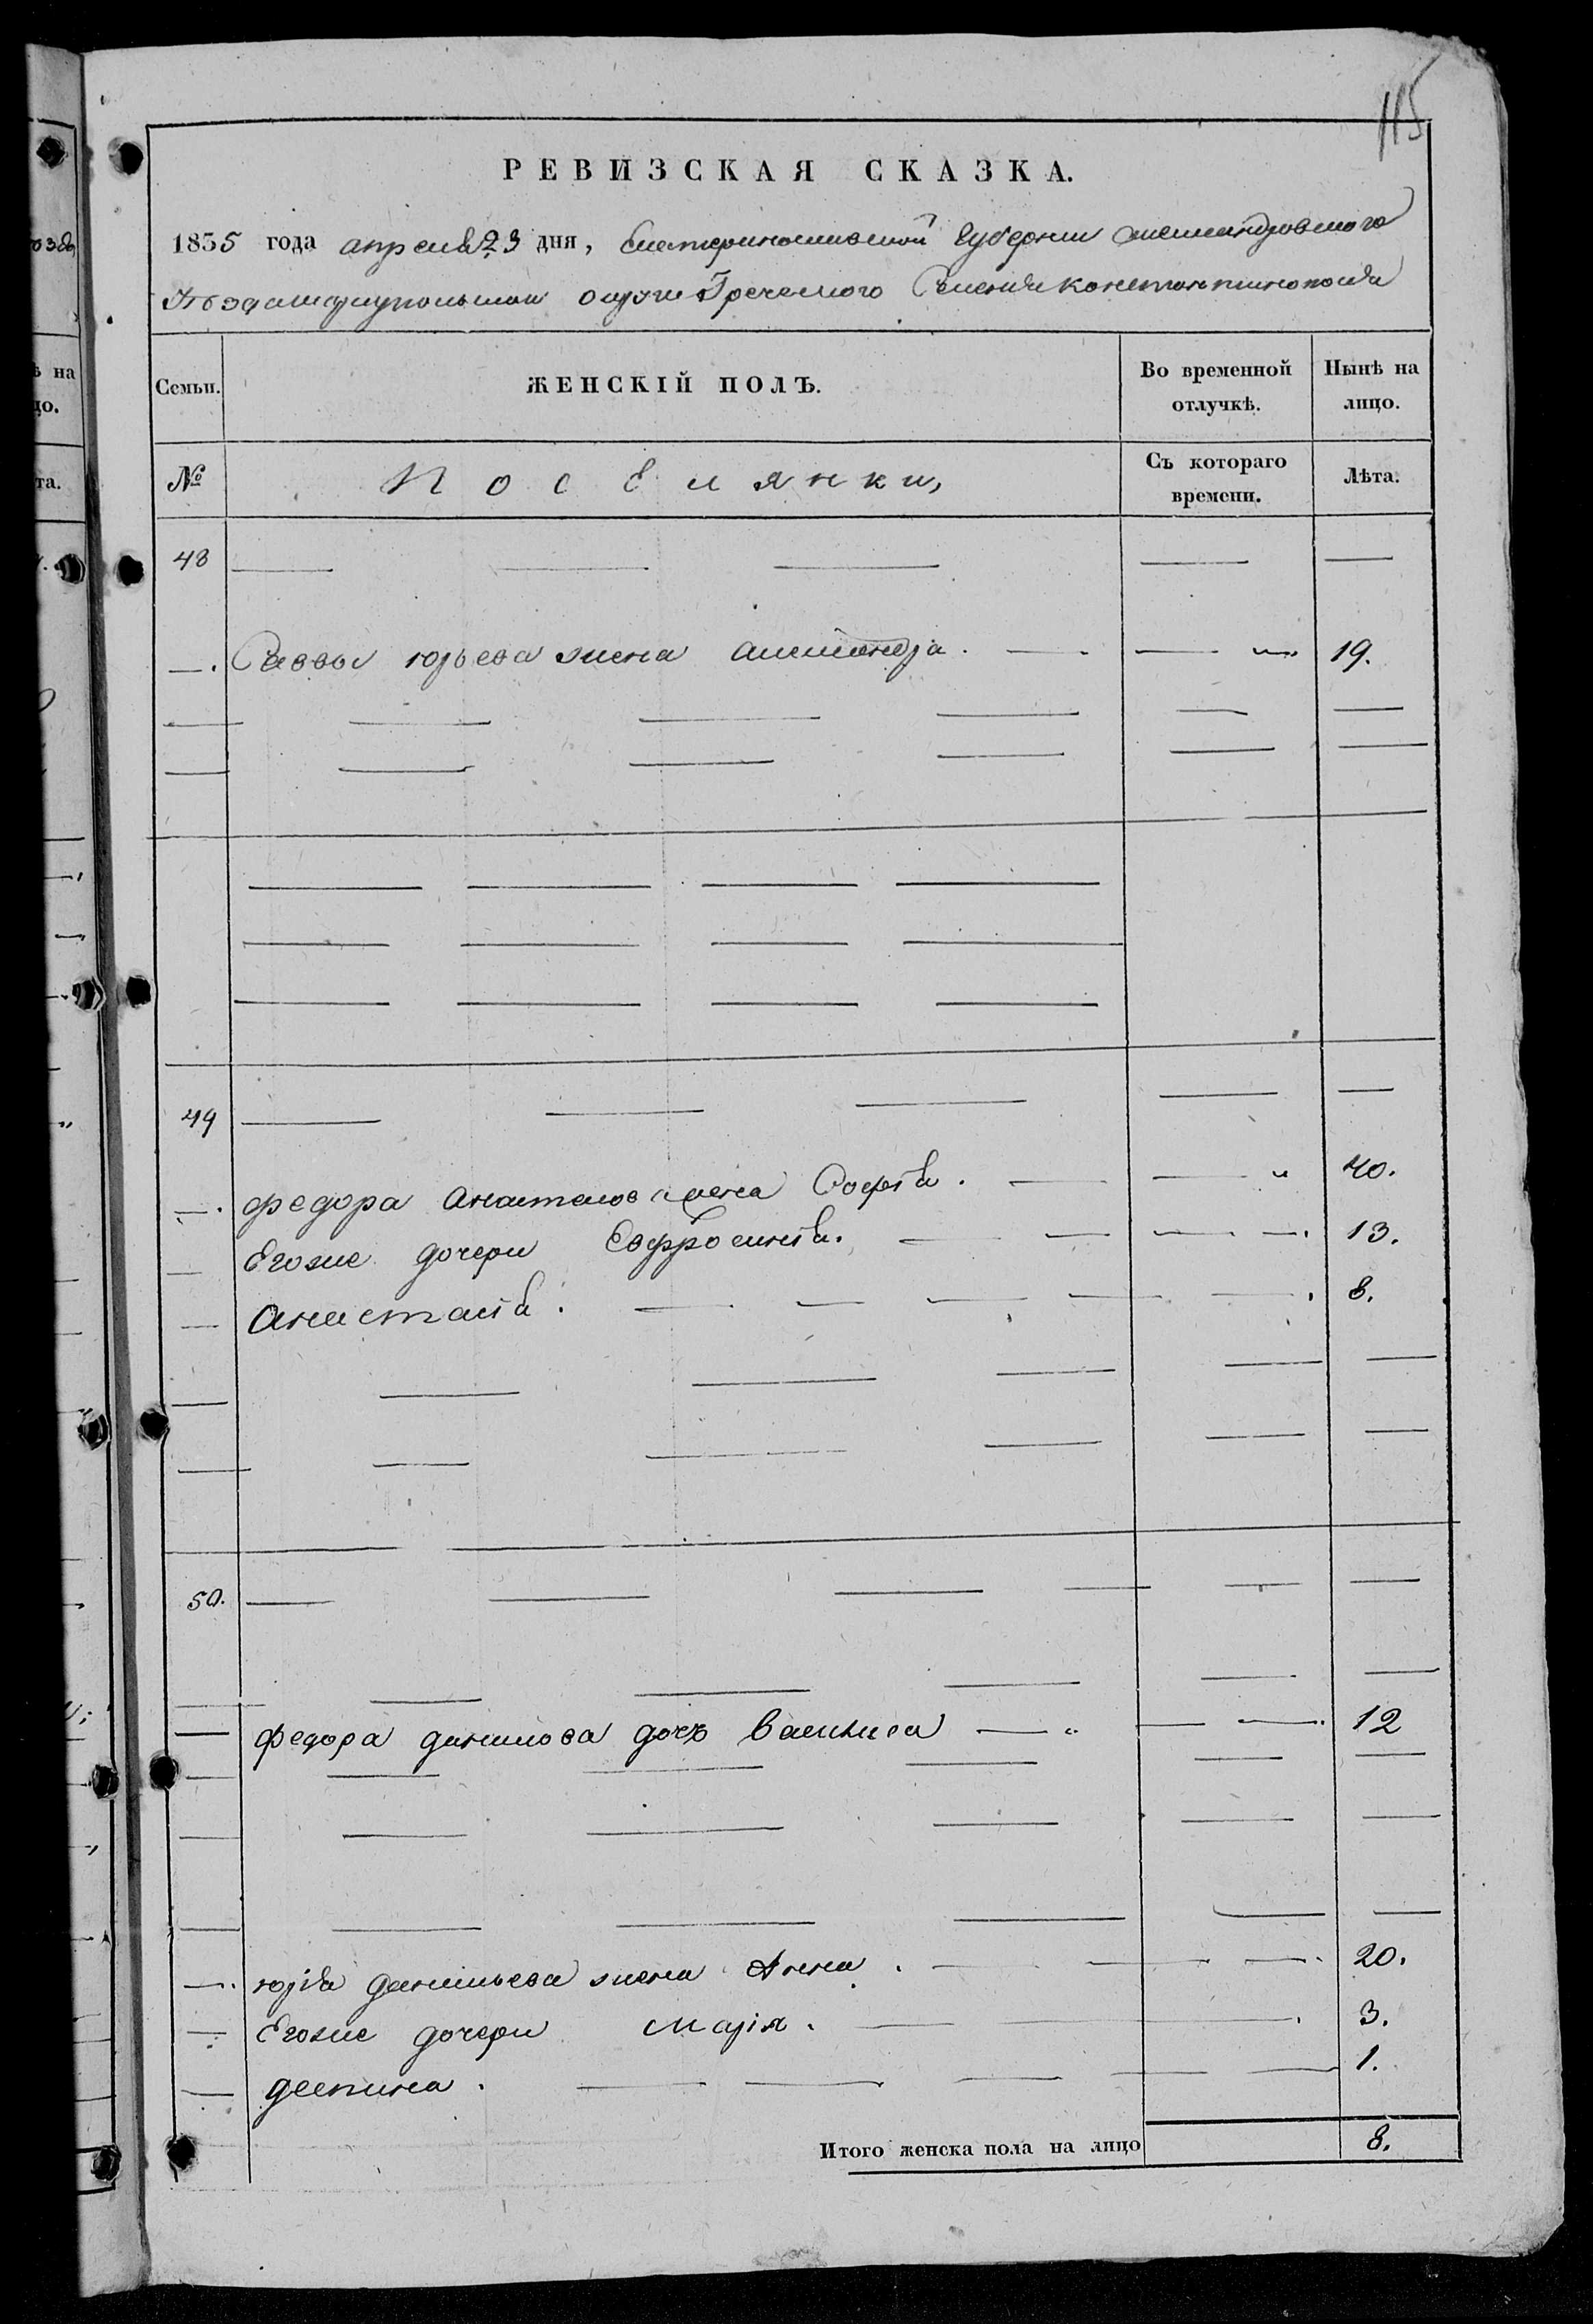 115
РЕВИЗСКАЯ СКАЗКА.
1835 года апреля 23 дня, Екатеринославской Губернии Александровского
Уѣзда Мариупольском округи Греческого Селения Константинополя
Семьи. ЖЕНСКІЙ ПОЛЪ. Во временной отлучкѣ. Нынѣ на лицо.
№ Поселянки, Съ котораго времени. Лѣта.
48
Саввы юрьева жена александра. 19.
49
федора Анастасов жена Софія. 40.
Егоже дочери Евфросинія. 13.
Анастасія. 8.
50.
федора данилова дочь Василиса 12
юрія данильева жена Анна. 20.
Егоже дочери Марія. 3.
деспина. 1.
Итого женска пола на лицо 8.